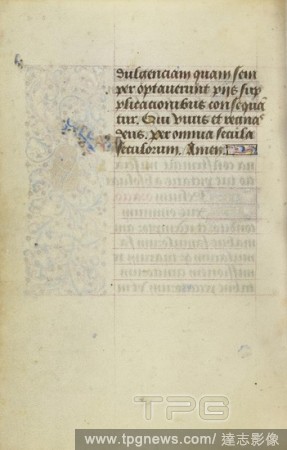 dulgenciam quam sem
per optauerunt piis sup
plicacionibus consequā
tur. Qui viuis et regnas
deus. per omnia secula
seculorum. Amen.
TPG
www.tpgnews.com / 達志影像